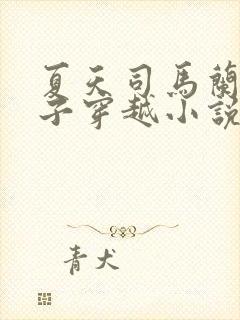 夏天司馬蘭
子穿越小說
青犬